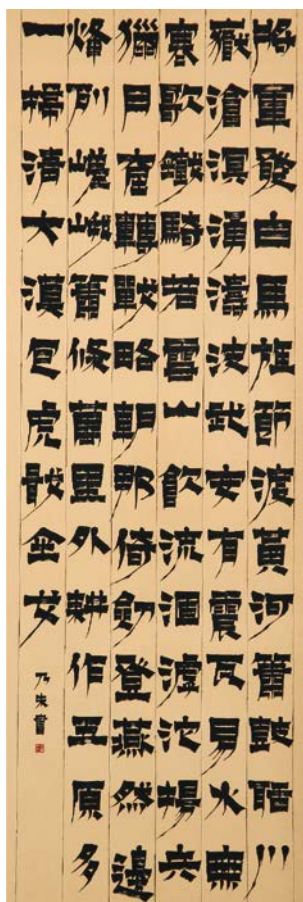 將軍發白馬旌節渡黃河簫鼓聒川
嶽滄溟涌濤波武安有震瓦易水無
寒歌鐵騎若雪山飲流涸滹沱揚兵
獵月窟轉戰略朝那倚劍登燕然邊
烽列嵯峨簫條萬里外耕作五原多
一掃清大漠包虎戢金戈